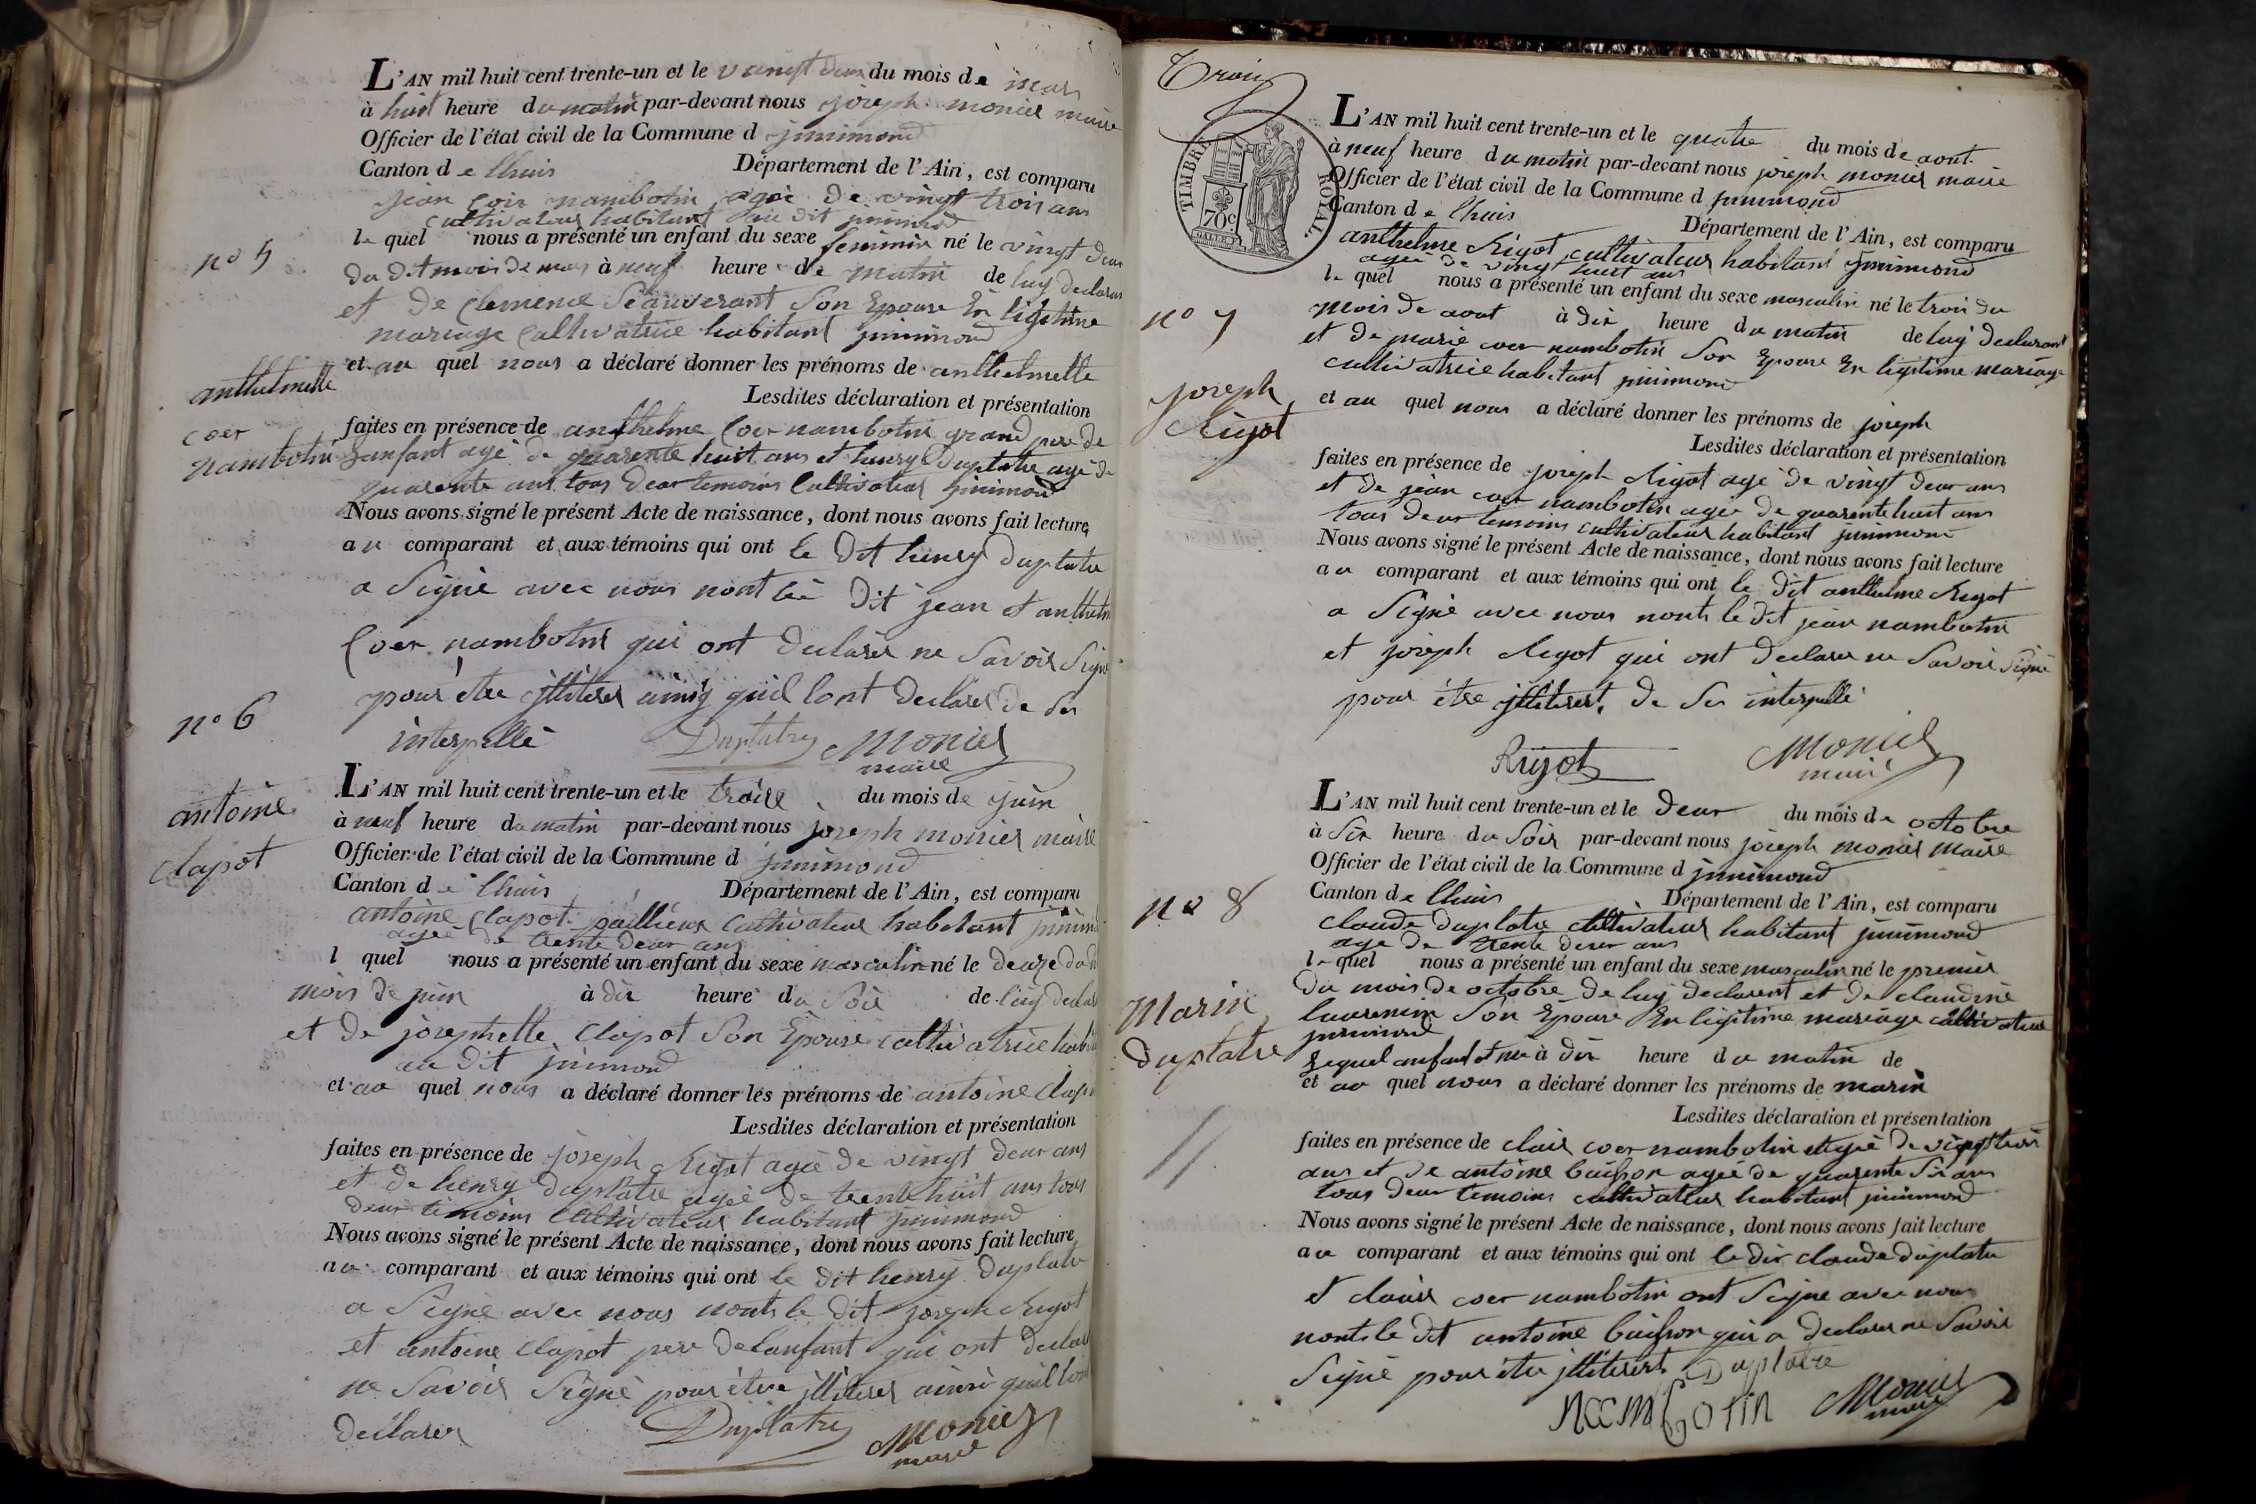 L'AN mil huit cent trente-un et le vingt deux du mois de mars
à huit heure du matin par-devant nous joseph monier maire
Officier de l'état civil de la Commune d jnnimond
Canton de lhuis Département de l'Ain, est comparu
jean coer nambotin agé de vingt trois ans
cultivateur habitant au dit jnnimond
le quel nous a présenté un enfant du sexe feminin né le vingt deux
n° 5
du dit mois de mars à neuf heure de matin de luy declarant
et de clemence Son Epouse En ligitime
mariage Cultivatrice habitant jnnimond
et au quel nous a déclaré donner les prénoms de anthelmette
anthelmette
coer
nambotin
Lesdites déclaration et présentation
faites en présence de anthelme Coer nambotin grand pere de
Lanfant agé de quarente huit ans et henry Duplatre agé de
quarente ans tous deux temoins Cultivateur jnnimond
Nous avons signé le présent Acte de naissance, dont nous avons fait lecture
au comparant et aux témoins qui ont le Dit henry Duplatre
a Signé avec nous nont le Dit jean et anthelme
Coer nambotin qui ont Declarer ne Savoir Signé
pour être jlliterer quil lont Declarer de Ser
interpellé Duplatre Monier
maire
n° 6
antoine
Clapot
L'AN mil huit cent trente-un et le treize du mois de juin
à neuf heure du matin par-devant nous joseph monier maire
Officier de l'état civil de la Commune d jnnimond
Canton de lhuis Département de l'Ain, est comparu
antoine Clapot Cultivateur habitant jnnimond
agé de trente deux ans
l quel nous a présenté un enfant du sexe masculin né le douze du dit
mois de juin à dix heure du Soir de luy declarant
et de josephette Clapot Son Epouse cultivatrice habitant
au dit jnnimond
et au quel nous a déclaré donner les prénoms de antoine Clapot
Lesdites déclaration et présentation
faites en présence de joseph Rigot agé de vingt deux ans
et de henry Duplatre agé de trente huit ans tous
deux temoins Cultivateur habitant jnnimond
Nous avons signé le présent Acte de naissance, dont nous avons fait lecture
au comparant et aux témoins qui ont le dit henry Duplatre
a Signé avec nous nont le Dit joseph Rigot
et antoine Clapot pere de lanfant qui ont declarer
ne Savoir Signé pour être jlliterer ainsi quil lont
declarer Duplatre Monier
maire
Trois
TIMBRE ROYAL
70c.
L'AN mil huit cent trente-un et le quatre du mois de aout
à neuf heure du matin par-devant nous joseph monier maire
Officier de l'état civil de la Commune d jnnimond
Canton de lhuis Département de l'Ain, est comparu
anthelme Rigot cultivateur habitant jnnimond
agé de vingt huit ans
le quel nous a présenté un enfant du sexe masculin né le trois du
n° 7
mois de aout à dix heure du matin de luy declarant
et de marie coer nambotin Son Epouse En legitime mariage
cultivatrice habitant jnnimond
joseph
Rigot
et au quel nous a déclaré donner les prénoms de joseph
Lesdites déclaration et présentation
faites en présence de joseph Rigot agé de vingt deux ans
et de jean coer nambotin agé de quarente huit ans
tous deux temoins cultivateur habitant jnnimond
Nous avons signé le présent Acte de naissance, dont nous avons fait lecture
au comparant et aux témoins qui ont le dit anthelme Rigot
a Signé avec nous nont le dit jean nambotin
et joseph Rigot qui ont declarer ne Savoir Signé
pour être jlliterert de Ser interpellé
Rigot Monier
maire
L'AN mil huit cent trente-un et le deux du mois de octobre
à Six heure du Soir par-devant nous joseph monier maire
Officier de l'état civil de la Commune d jnnimond
Canton de lhuis Département de l'Ain, est comparu
n° 8
claude duplatre cultivateur habitant jnnimond
age de trente deux ans
le quel nous a présenté un enfant du sexe masculin né le premier
du mois de octobre de luy declarent et de claudine
Marin
duplatre
Son Epouse En legitime mariage cultivateur
jnnimond
Lequel anfant et né à dix heure du matin de
et au quel nous a déclaré donner les prénoms de marin
Lesdites déclaration et présentation
faites en présence de clair coer nambotin agé de vingt trois
ans et de antoine buisson agée de quarente Six ans
tous deux temoins cultivateur habitant jnnimond
Nous avons signé le présent Acte de naissance, dont nous avons fait lecture
au comparant et aux témoins qui ont le dit claude duplatre
et clair coer nambotin ont Signe avec nous
nont le dit antoine buisson qui a declarer ne Savoir
Signé pour être jlliterert Duplatre
Nambotin Monier
maire